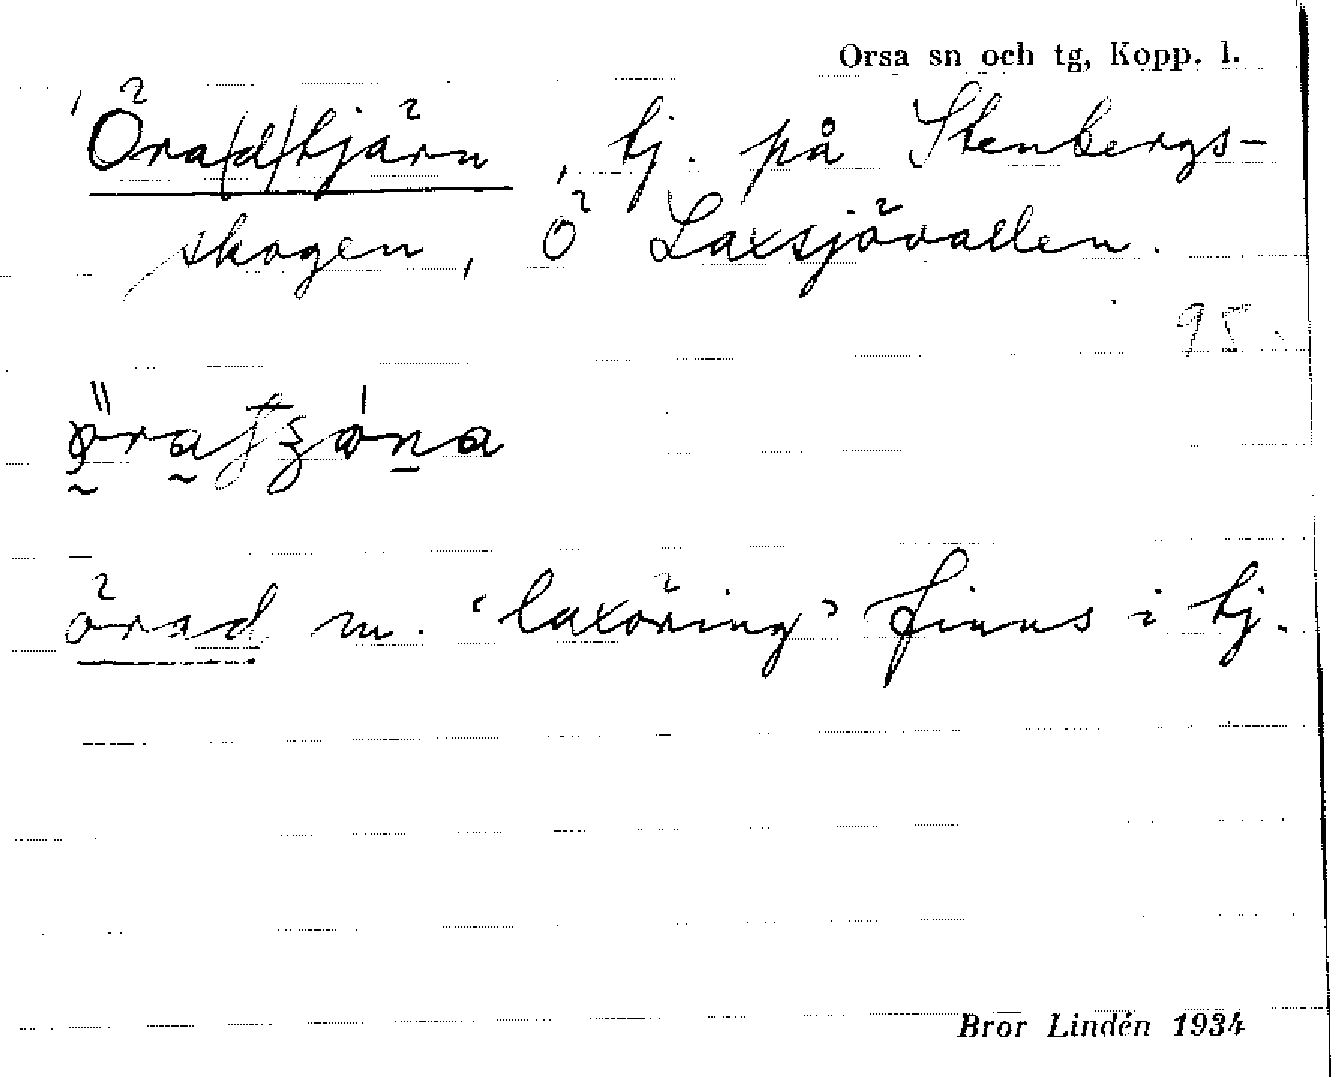 Orsa sn och tg, Kopp. l.
Öra(d)tjärn, tj. på Stenbergs-
skogen, Ö Laxsjövallen.
95.
örad m. 'laxöring' finns i tj.
Bror Lindén 1934